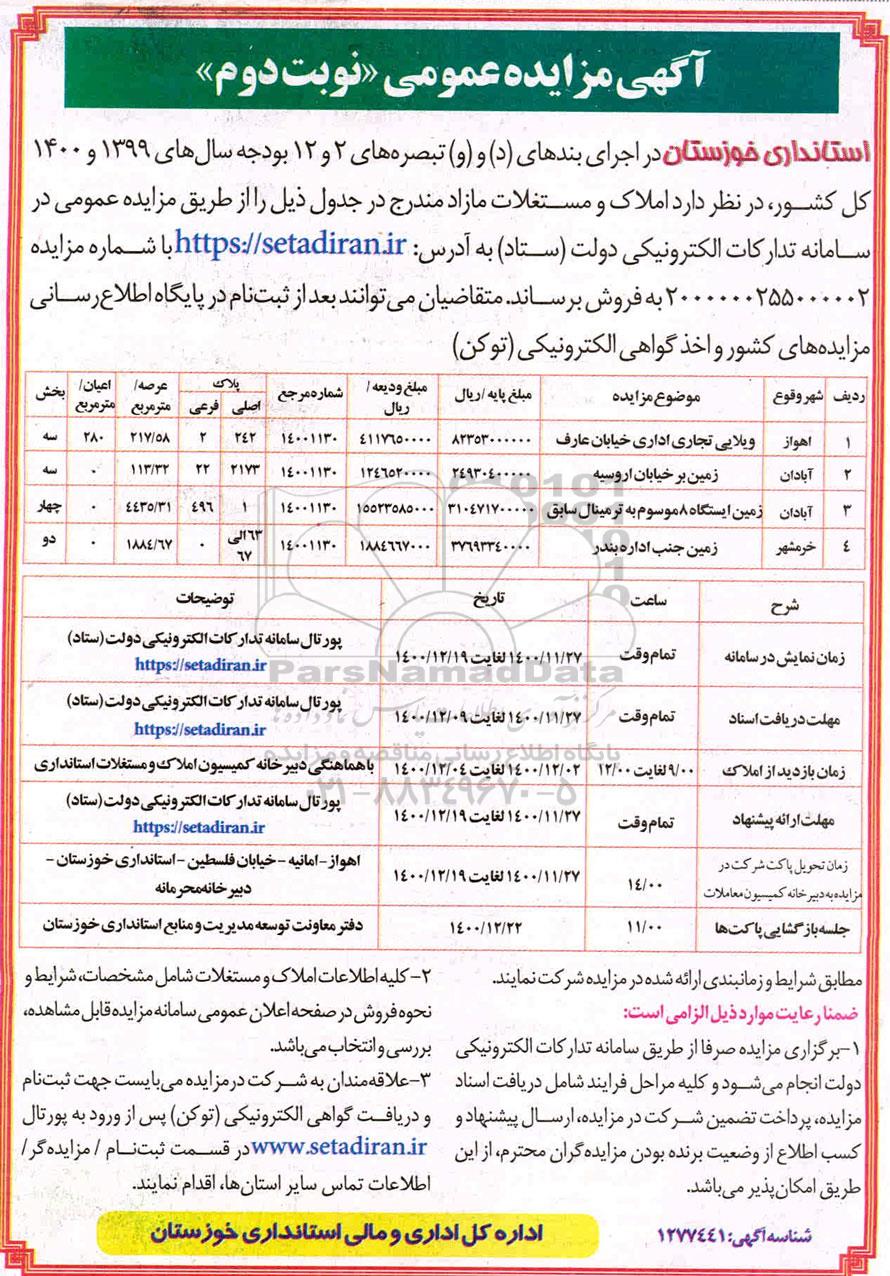 آگهی مزایده عمومی «نوبت دوم»
استانداری خوزستان در اجرای بندهای (د) و (و) تبصره‌های ۲ و ۱۲ بودجه سال‌های ۱۳۹۹ و ۱۴۰۰
کل کشور، در نظر دارد املاک و مستغلات مازاد مندرج در جدول ذیل را از طریق مزایده عمومی در
سامانه تدارکات الکترونیکی دولت (ستاد) به آدرس: https://setadiran.ir با شماره مزایده
۲۰۰۰۰۰۰۲۵۵۰۰۰۰۰۲ به فروش برساند. متقاضیان می‌توانند بعد از ثبت‌نام در پایگاه اطلاع‌رسانی
مزایده‌های کشور و اخذ گواهی الکترونیکی (توکن)
ردیف شهر وقوع موضوع مزایده مبلغ پایه / ریال مبلغ ودیعه / ریال شماره مرجع پلاک اصلی فرعی عرصه/ مترمربع اعیان/ مترمربع بخش
۱ اهواز ویلایی تجاری اداری خیابان عارف ۸۲۳۵۳۰۰۰۰۰۰ ۴۱۱۷۶۵۰۰۰۰ ۱۴۰۰۱۱۳۰ ۲۴۲ ۲ ۲۱۷/۵۸ ۲۸۰ سه
۲ آبادان زمین بر خیابان اروسیه ۲۴۹۳۰۴۰۰۰۰۰ ۱۲۴۶۵۲۰۰۰۰ ۱۴۰۰۱۱۳۰ ۲۱۷۳ ۲۲ ۱۱۳/۳۲ ۰ سه
۳ آبادان زمین ایستگاه ۸ موسوم به ترمینال سابق ۳۱۰۴۷۱۷۰۰۰۰۰ ۱۵۵۲۳۵۸۵۰۰۰ ۱۴۰۰۱۱۳۰ ۱ ۴۹۶ ۴۴۳۵/۳۱ ۰ چهار
۴ خرمشهر زمین جنب اداره بندر ۳۷۶۹۳۳۴۰۰۰۰ ۱۸۸۴۶۶۷۰۰۰ ۱۴۰۰۱۱۳۰ ۶۳ الی ۶۷ ۰ ۱۸۸۴/۶۷ ۰ دو
شرح ساعت تاریخ توضیحات
زمان نمایش در سامانه تمام وقت ۱۴۰۰/۱۱/۲۷ لغایت ۱۴۰۰/۱۲/۱۹ پورتال سامانه تدارکات الکترونیکی دولت (ستاد)
https://setadiran.ir
مهلت دریافت اسناد تمام وقت ۱۴۰۰/۱۱/۲۷ لغایت ۱۴۰۰/۱۲/۰۹ پورتال سامانه تدارکات الکترونیکی دولت (ستاد)
https://setadiran.ir
زمان بازدید از املاک ۹/۰۰ لغایت ۱۲/۰۰ ۱۴۰۰/۱۲/۰۲ لغایت ۱۴۰۰/۱۲/۰۴ با هماهنگی دبیرخانه کمیسیون املاک و مستغلات استانداری
مهلت ارائه پیشنهاد تمام وقت ۱۴۰۰/۱۱/۲۷ لغایت ۱۴۰۰/۱۲/۱۹ پورتال سامانه تدارکات الکترونیکی دولت (ستاد)
https://setadiran.ir
زمان تحویل پاکت شرکت در ۱۴/۰۰ ۱۴۰۰/۱۱/۲۷ لغایت ۱۴۰۰/۱۲/۱۹ اهواز - امانیه - خیابان فلسطین - استانداری خوزستان -
مزایده به دبیرخانه کمیسیون معاملات دبیرخانه محرمانه
جلسه بازگشایی پاکت‌ها ۱۱/۰۰ ۱۴۰۰/۱۲/۲۲ دفتر معاونت توسعه مدیریت و منابع استانداری خوزستان
ParsNamadData
پایگاه اطلاع رسانی مناقصه و مزایده
۰۲۱-۸۸۳۴۹۶۷۰-۵
مطابق شرایط و زمانبندی ارائه شده در مزایده شرکت نمایند.
ضمنا رعایت موارد ذیل الزامی است:
۱- برگزاری مزایده صرفا از طریق سامانه تدارکات الکترونیکی
دولت انجام می‌شود و کلیه مراحل فرایند شامل دریافت اسناد
مزایده، پرداخت تضمین شرکت در مزایده، ارسال پیشنهاد و
کسب اطلاع از وضعیت برنده بودن مزایده‌گران محترم، از این
طریق امکان‌پذیر می‌باشد.
۲- کلیه اطلاعات املاک و مستغلات شامل مشخصات، شرایط و
نحوه فروش در صفحه اعلان عمومی سامانه مزایده قابل مشاهده،
بررسی و انتخاب می‌باشد.
۳- علاقه‌مندان به شرکت در مزایده می‌بایست جهت ثبت‌نام
و دریافت گواهی الکترونیکی (توکن) پس از ورود به پورتال
www.setadiran.ir در قسمت ثبت‌نام / مزایده‌گر/
اطلاعات تماس سایر استان‌ها، اقدام نمایند.
شناسه آگهی: ۱۲۷۷۴۴۱
اداره کل اداری و مالی استانداری خوزستان